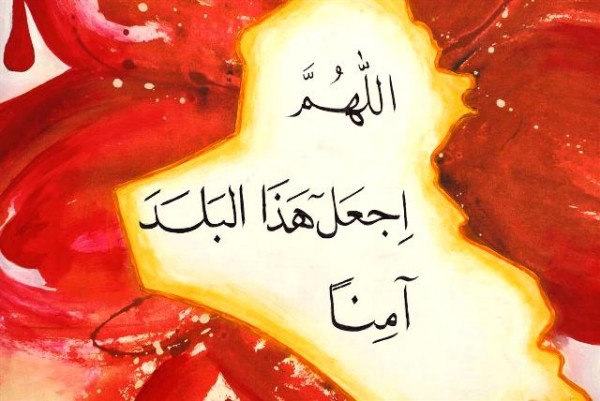 اللّٰهُمَّ
اِجعَل هَٓذَا البَلَدَ
آمِناً